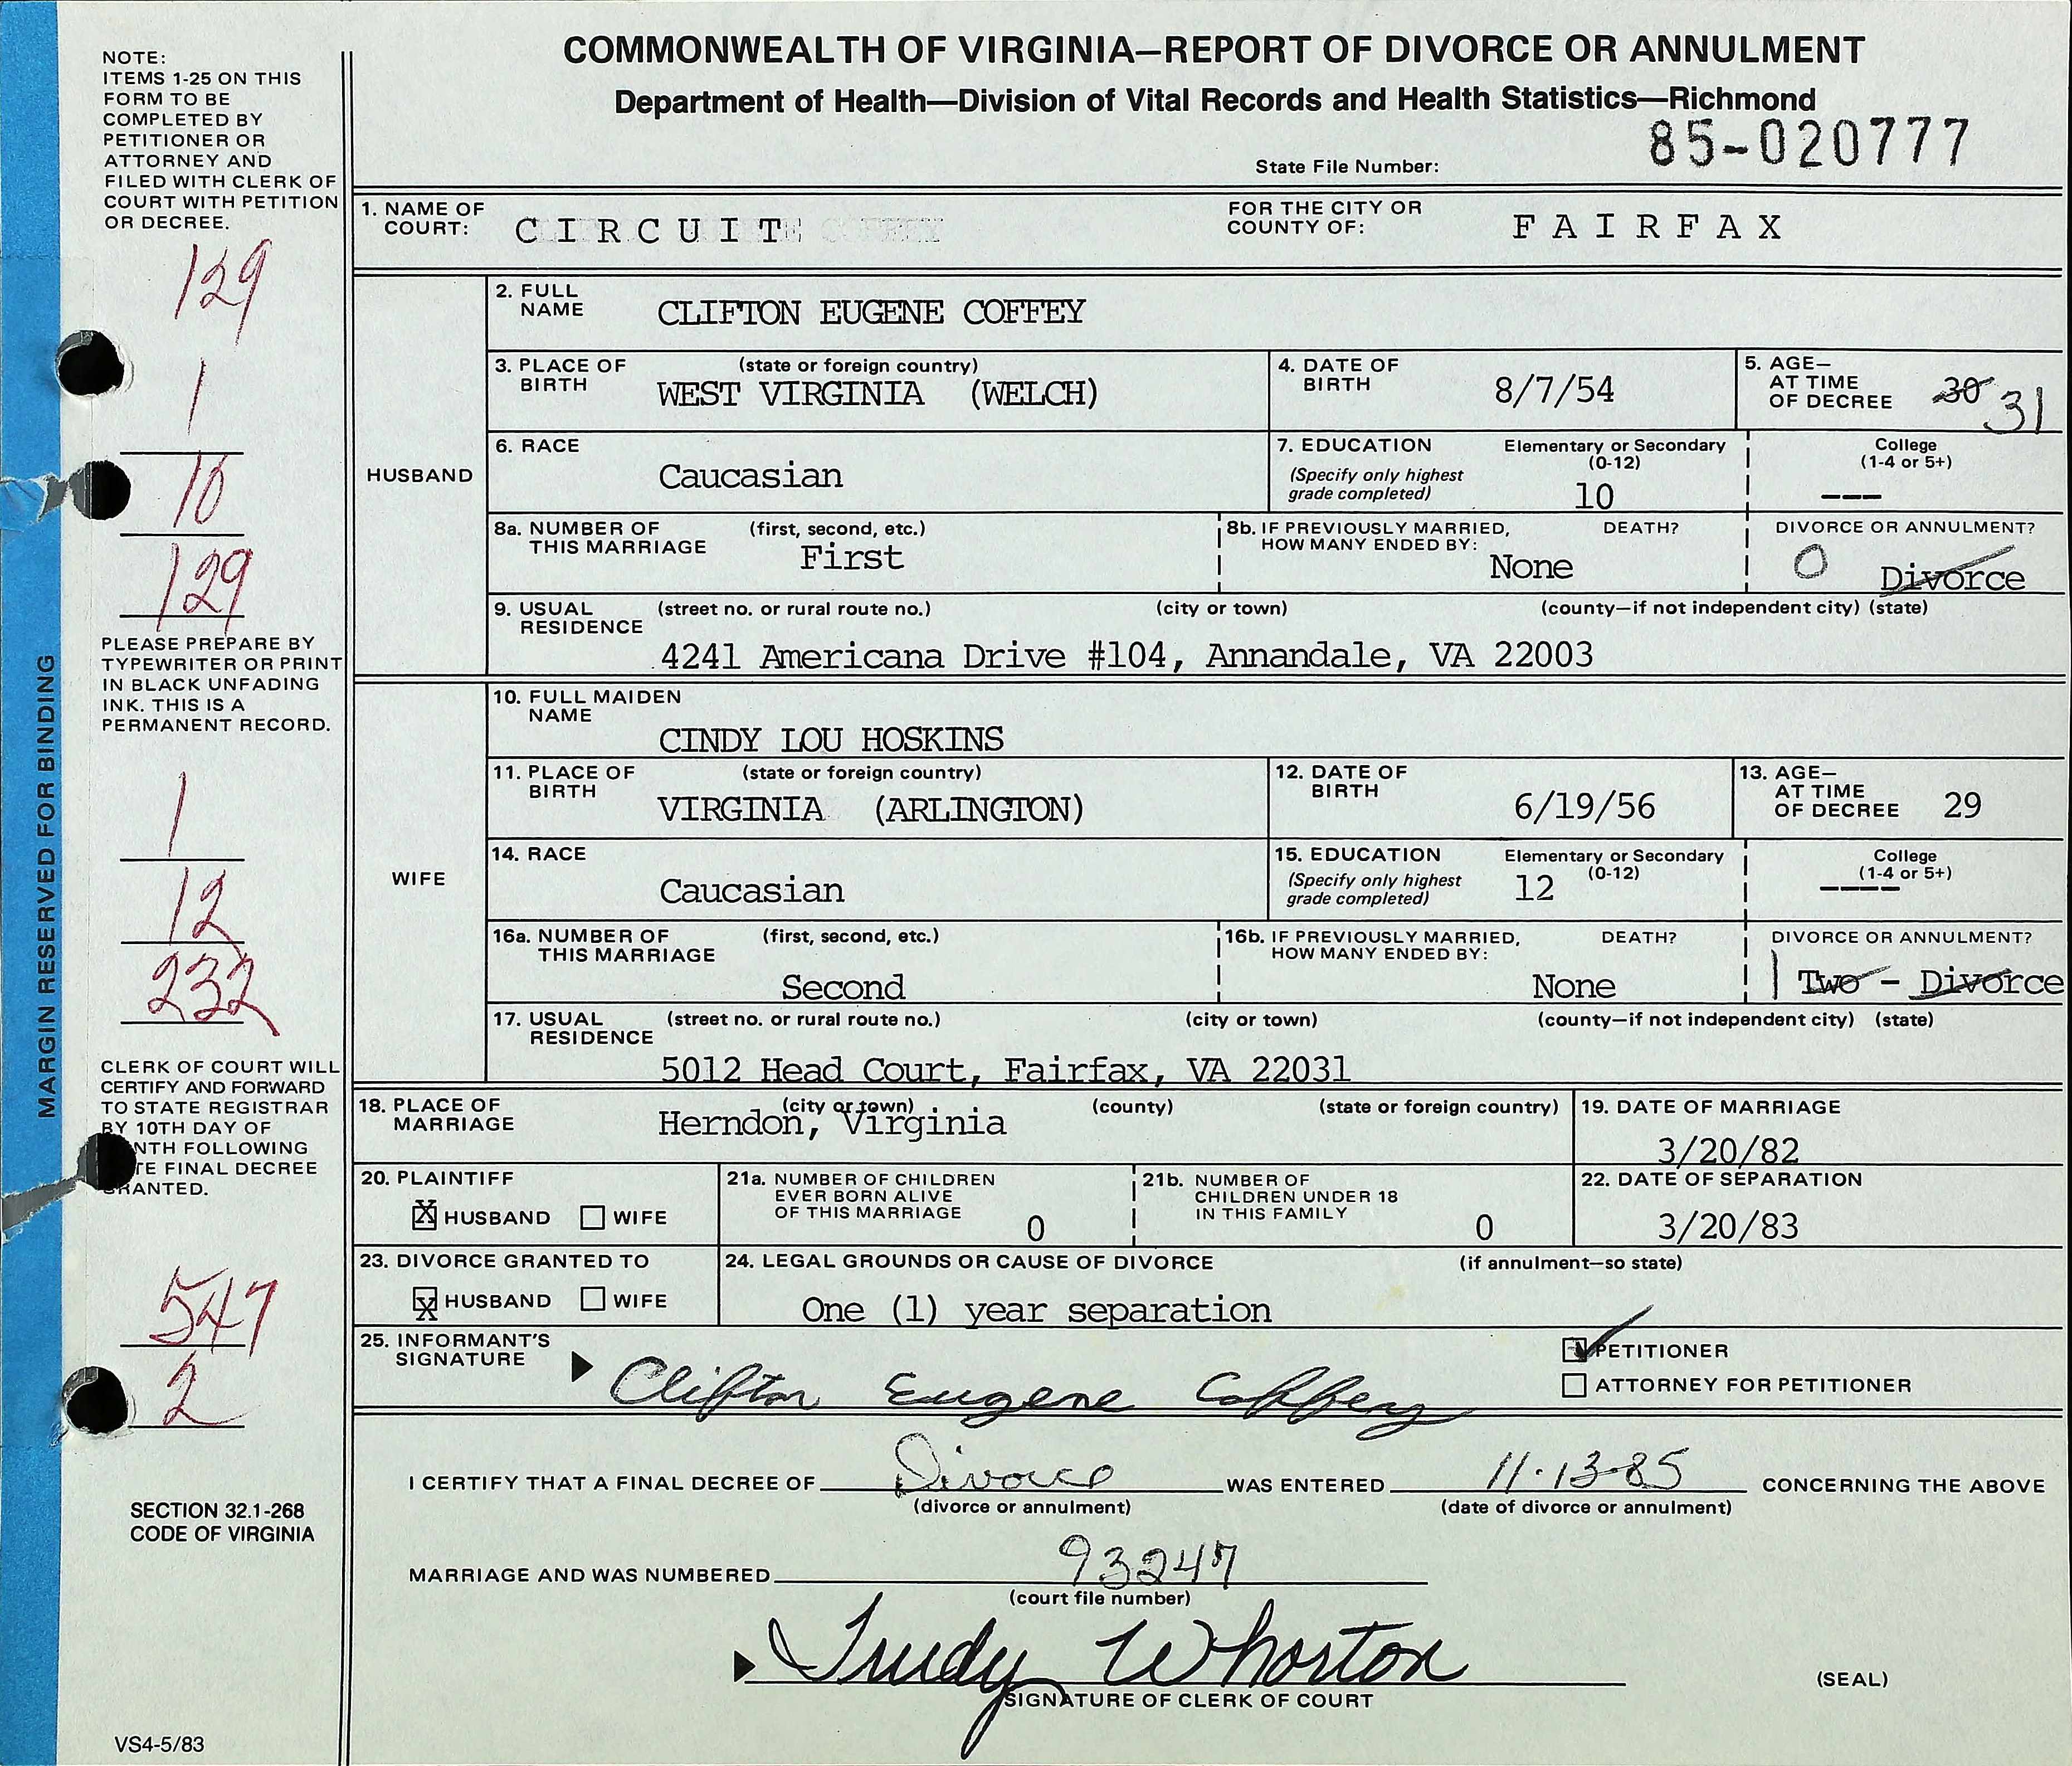 COMMONWEALTH OF VIRGINIA—REPORT OF DIVORCE OR ANNULMENT
Department of Health—Division of Vital Records and Health Statistics—Richmond
State File Number: 85-020777
NOTE:
ITEMS 1-25 ON THIS
FORM TO BE
COMPLETED BY
PETITIONER OR
ATTORNEY AND
FILED WITH CLERK OF
COURT WITH PETITION
OR DECREE.
129
1
10
129
PLEASE PREPARE BY
TYPEWRITER OR PRINT
IN BLACK UNFADING
INK. THIS IS A
PERMANENT RECORD.
1
12
232
CLERK OF COURT WILL
CERTIFY AND FORWARD
TO STATE REGISTRAR
BY 10TH DAY OF
NTH FOLLOWING
TE FINAL DECREE
RANTED.
547
2
SECTION 32.1-268
CODE OF VIRGINIA
VS4-5/83
MARGIN RESERVED FOR BINDING
1. NAME OF COURT: CIRCUIT FOR THE CITY OR COUNTY OF: FAIRFAX
HUSBAND
2. FULL NAME CLIFTON EUGENE COFFEY
3. PLACE OF BIRTH (state or foreign country) WEST VIRGINIA (WELCH)
4. DATE OF BIRTH 8/7/54
5. AGE— AT TIME OF DECREE 30 31
6. RACE Caucasian
7. EDUCATION (Specify only highest grade completed) Elementary or Secondary (0-12) 10 College (1-4 or 5+) ---
8a. NUMBER OF THIS MARRIAGE (first, second, etc.) First
8b. IF PREVIOUSLY MARRIED, HOW MANY ENDED BY: DEATH? None DIVORCE OR ANNULMENT? 0 Divorce
9. USUAL RESIDENCE (street no. or rural route no.) (city or town) (county—if not independent city) (state)
4241 Americana Drive #104, Annandale, VA 22003
WIFE
10. FULL MAIDEN NAME CINDY LOU HOSKINS
11. PLACE OF BIRTH (state or foreign country) VIRGINIA (ARLINGTON)
12. DATE OF BIRTH 6/19/56
13. AGE— AT TIME OF DECREE 29
14. RACE Caucasian
15. EDUCATION (Specify only highest grade completed) Elementary or Secondary (0-12) 12 College (1-4 or 5+) ----
16a. NUMBER OF THIS MARRIAGE (first, second, etc.) Second
16b. IF PREVIOUSLY MARRIED, HOW MANY ENDED BY: DEATH? None DIVORCE OR ANNULMENT? 1 Two - Divorce
17. USUAL RESIDENCE (street no. or rural route no.) (city or town) (county—if not independent city) (state)
5012 Head Court, Fairfax, VA 22031
18. PLACE OF MARRIAGE (city or town) (county) (state or foreign country) Herndon, Virginia
19. DATE OF MARRIAGE 3/20/82
20. PLAINTIFF X HUSBAND WIFE
21a. NUMBER OF CHILDREN EVER BORN ALIVE OF THIS MARRIAGE 0
21b. NUMBER OF CHILDREN UNDER 18 IN THIS FAMILY 0
22. DATE OF SEPARATION 3/20/83
23. DIVORCE GRANTED TO X HUSBAND WIFE
24. LEGAL GROUNDS OR CAUSE OF DIVORCE (if annulment—so state) One (1) year separation
25. INFORMANT'S SIGNATURE Clifton Eugene Coffey
PETITIONER
ATTORNEY FOR PETITIONER
I CERTIFY THAT A FINAL DECREE OF Divorce WAS ENTERED 11-13-85 CONCERNING THE ABOVE
(divorce or annulment) (date of divorce or annulment)
MARRIAGE AND WAS NUMBERED 93247
(court file number)
Trudy Whorton
SIGNATURE OF CLERK OF COURT
(SEAL)